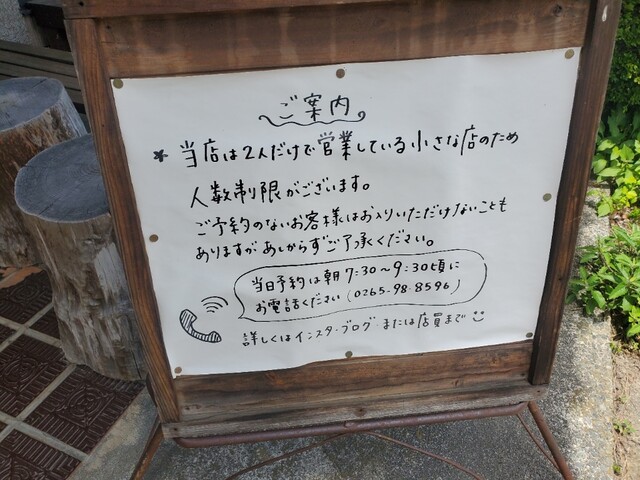 ご案内
* 当店は2人だけで営業している小さな店のため
人数制限がございます。
ご予約のないお客様はお入りいただけないことも
ありますがあしからずご了承ください。
当日予約は朝7:30～9:30頃に
お電話ください(0265-98-8596)
詳しくはインスタ・ブログ・または店員まで